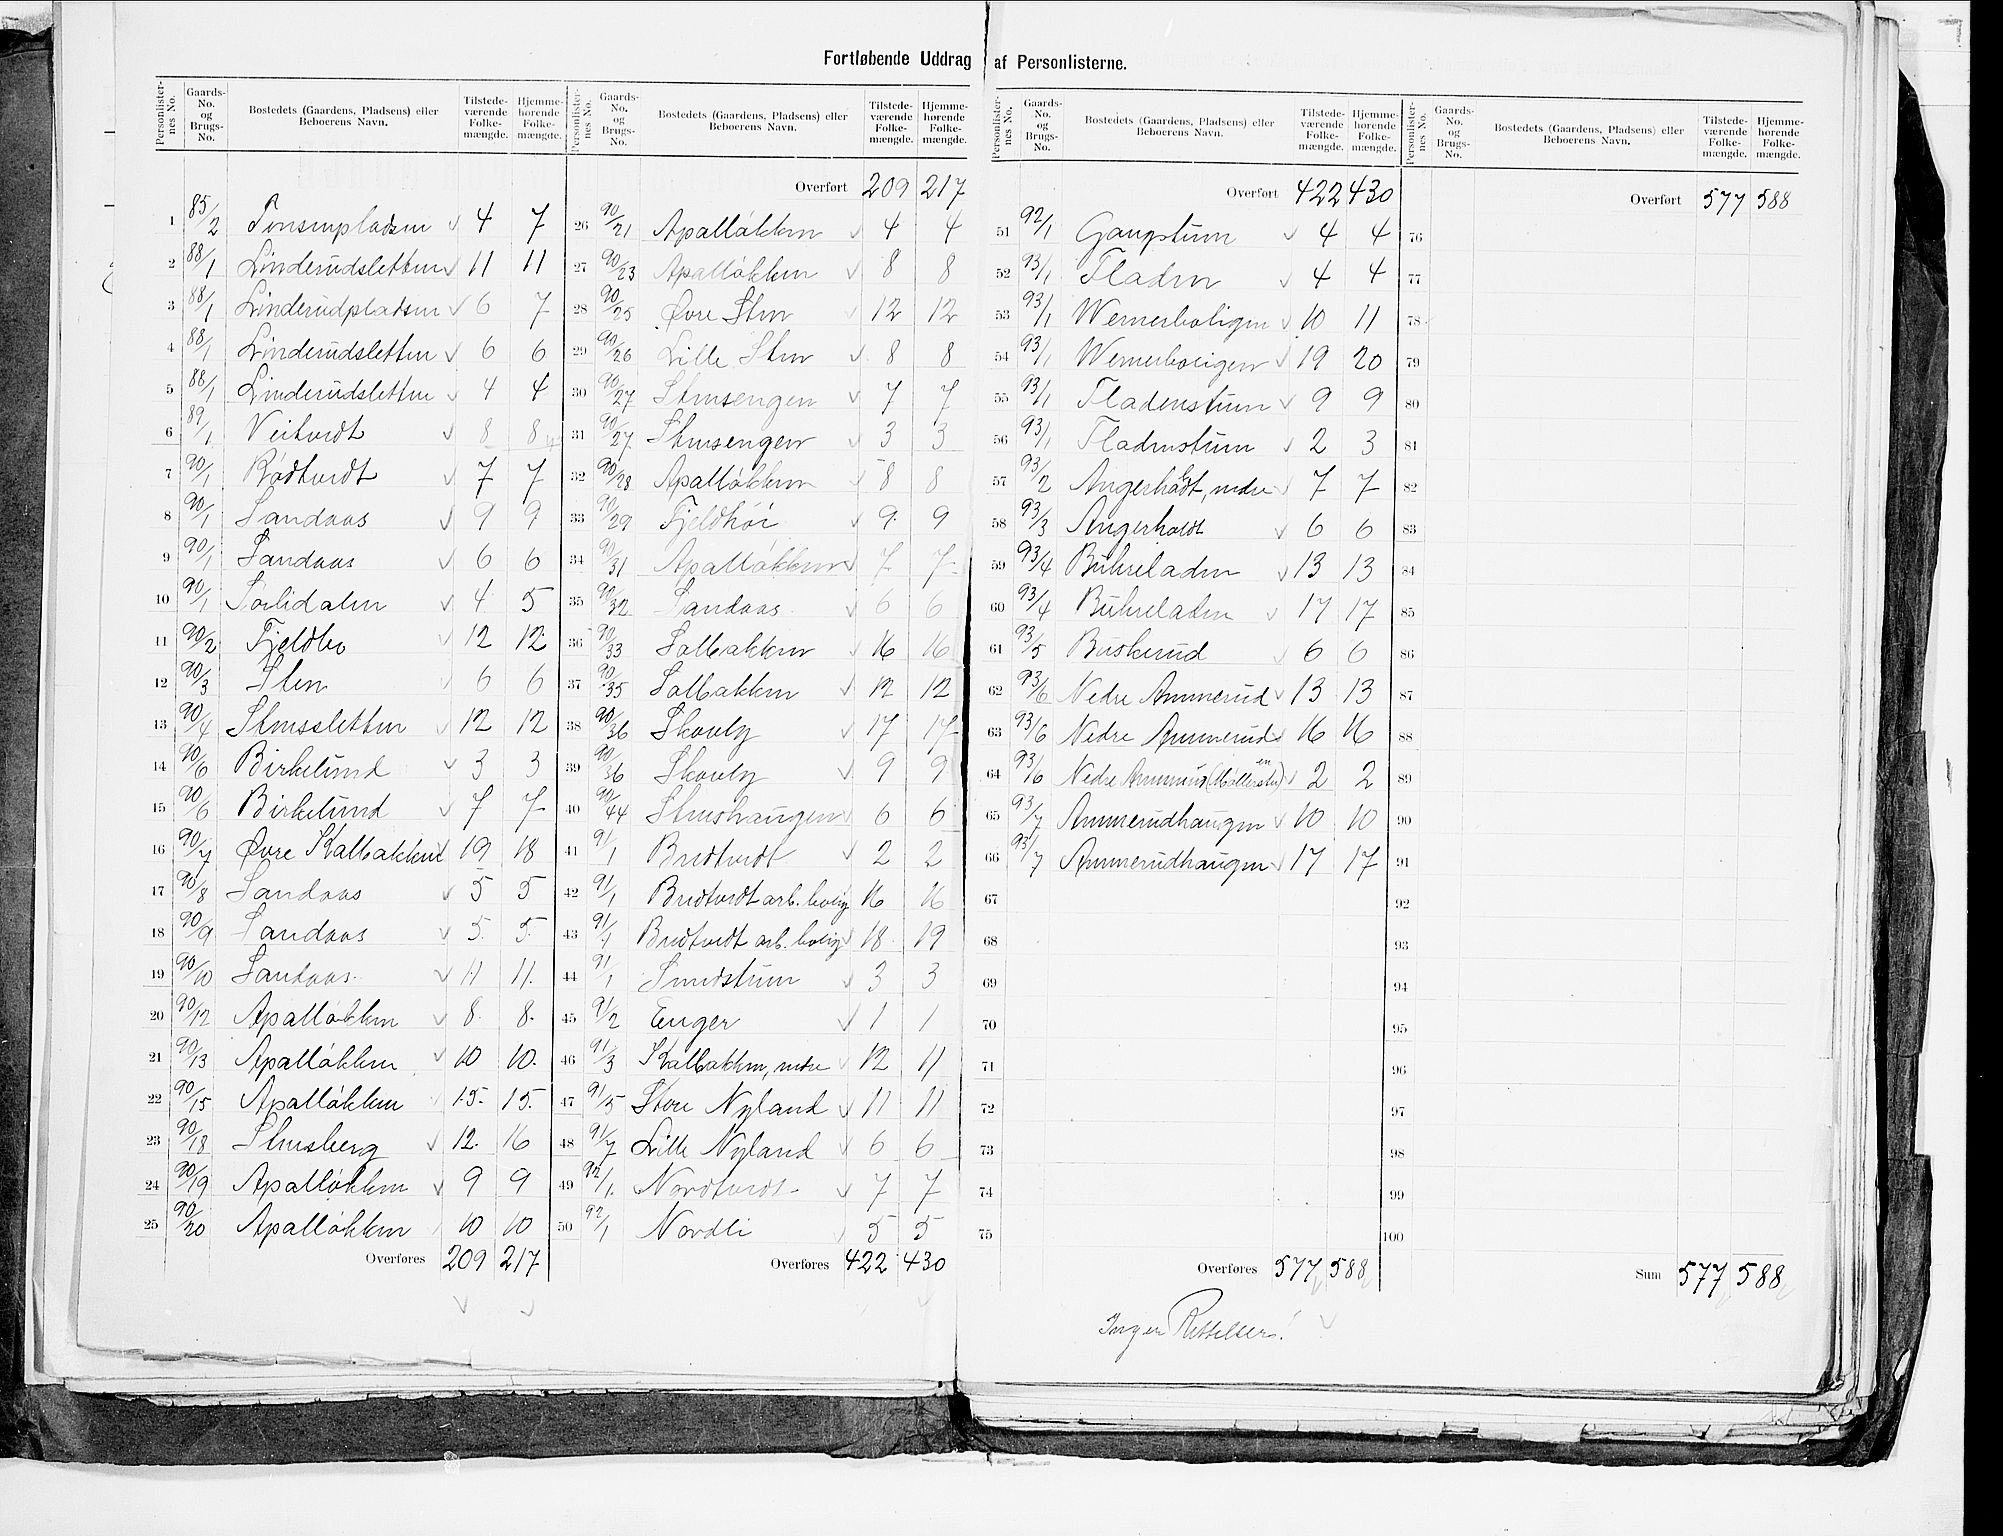 Fortløbende Uddrag af Personlisterne.
Personlister-nes No. | Gaards-No. og Brugs-No. | Bostedets (Gaardens, Pladsens) eller Beboerens Navn. | Tilstede-værende Folke-mængde. | Hjemme-hørende Folke-mængde.
1 85/2 Tonsenpladsen 4 7
2 88/1 Linderudsletten 11 11
3 88/1 Linderudpladsen 6 7
4 88/1 Linderudsletten 6 6
5 88/1 Linderudsletten 4 4
6 89/1 Veitvedt 8 8
7 90/1 Rødtvedt 7 7
8 90/1 Sandaas 9 9
9 90/1 Sandaas 6 6
10 90/1 Sørlidalen 4 5
11 90/2 Fjeldbo 12 12
12 90/3 Sten 6 6
13 90/4 Stensletten 12 12
14 90/6 Birkelund 3 3
15 90/6 Birkelund 7 7
16 90/7 Øvre Kalbakken 19 18
17 90/8 Sandaas 5 5
18 90/9 Sandaas 5 5
19 90/10 Sandaas 11 11
20 90/12 Apalløkken 8 8
21 90/13 Apalløkken 10 10
22 90/15 Apalløkken 15 15
23 90/18 Stensberg 12 16
24 90/19 Apalløkken 9 9
25 90/20 Apalløkken 10 10
Overføres 209 217
Personlister-nes No. | Gaards-No. og Brugs-No. | Bostedets (Gaardens, Pladsens) eller Beboerens Navn. | Tilstede-værende Folke-mængde. | Hjemme-hørende Folke-mængde.
Overført 209 217
26 90/21 Apalløkken 4 4
27 90/23 Apalløkken 8 8
28 90/25 Øvre Sten 12 12
29 90/26 Lille Sten 8 8
30 90/27 Stensengen 7 7
31 90/27 Stensengen 3 3
32 90/28 Apalløkken 8 8
33 90/29 Fjeldhøi 9 9
34 90/31 Apalløkken 7 7
35 90/32 Sandaas 6 6
36 90/33 Solbakken 16 16
37 90/35 Solbakken 12 12
38 90/36 Skovly 17 17
39 90/36 Skovly 9 9
40 90/44 Stenshaugen 6 6
41 91/1 Bredtvedt 2 2
42 91/1 Bredtvedt arb. bolig 16 16
43 91/1 Bredtvedt arb. bolig 18 19
44 91/1 Smedstuen 3 3
45 91/2 Enger 1 1
46 91/3 Kalbakken, nedre 12 11
47 91/5 Store Nyland 11 11
48 91/7 Lille Nyland 6 6
49 92/1 Nordtvedt 7 7
50 92/1 Nordli 5 5
Overføres 422 430
Personlister-nes No. | Gaards-No. og Brugs-No. | Bostedets (Gaardens, Pladsens) eller Beboerens Navn. | Tilstede-værende Folke-mængde. | Hjemme-hørende Folke-mængde.
Overført 422 430
51 92/1 Gaupstuen 4 4
52 93/1 Fladen 4 4
53 93/1 Wernerboligen 10 11
54 93/1 Wernerboligen 19 20
55 93/1 Fladenstuen 9 9
56 93/1 Fladenstuen 2 3
57 93/2 Angerholdt, nedre 7 7
58 93/3 Angerholdt 6 6
59 93/4 Buhreladen 13 13
60 93/4 Buhreladen 17 17
61 93/5 Buskerud 6 6
62 93/6 Nedre Ammerud 13 13
63 93/6 Nedre Ammerud 16 16
64 93/6 Nedre Ammerud (Møllerstuen) 2 2
65 93/7 Ammerudhaugen 10 10
66 93/7 Ammerudhaugen 17 17
67
68
69
70
71
72
73
74
75
Overføres 577 588
Inger Rettelser!
Personlister-nes No. | Gaards-No. og Brugs-No. | Bostedets (Gaardens, Pladsens) eller Beboerens Navn. | Tilstede-værende Folke-mængde. | Hjemme-hørende Folke-mængde.
Overført 577 588
76
77
78
79
80
81
82
83
84
85
86
87
88
89
90
91
92
93
94
95
96
97
98
99
100
Sum 577 588